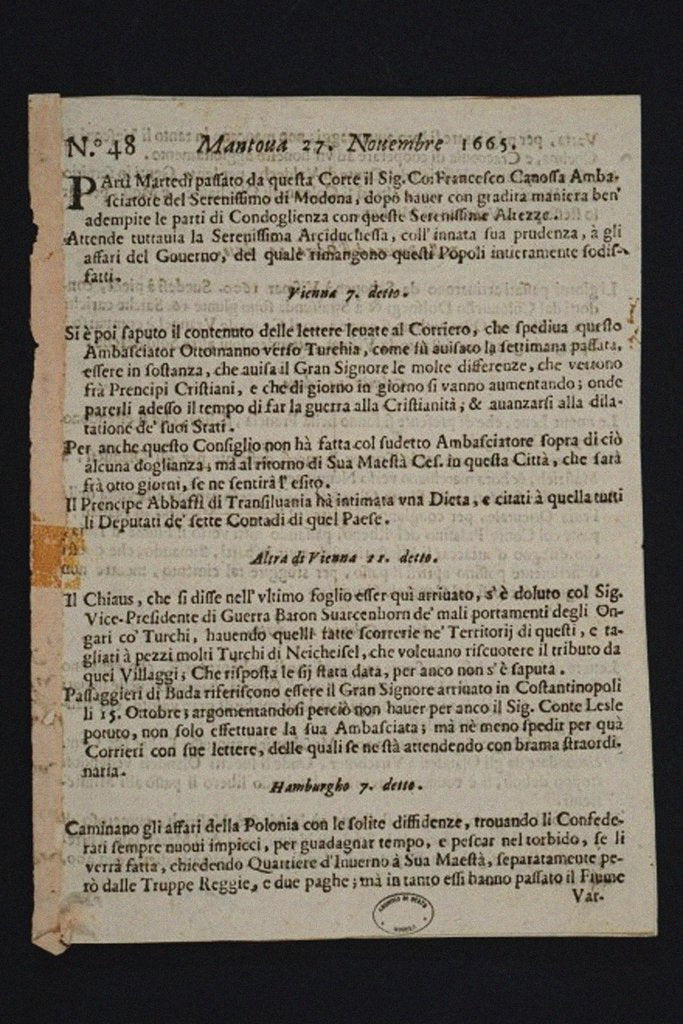 N.º 48 Mantoua 27. Nouembre 1665.
PArtì Martedì passato da questa Corte il Sig. Co: Francesco Canossa Amba-
sciatore del Serenissimo di Modona, dopò hauer con gradita maniera ben'
adempite le parti di Condoglienza con queste Serenissime Altezze.
Attende tuttauia la Serenissima Arciduchessa, coll' innata sua prudenza, à gli
affari del Gouerno, del quale rimangono questi Popoli intieramente sodis-
fatti.
Vienna 7. detto.
Si è poi saputo il contenuto delle lettere leuate al Corriero, che spediua questo
Ambasciator Ottomanno verso Turchia, come fù auisato la settimana passata,
essere in sostanza, che auisa il Gran Signore le molte differenze, che vertono
frà Prencipi Cristiani, e che di giorno in giorno si vanno aumentando; onde
parerli adesso il tempo di far la guerra alla Cristianità; & auanzarsi alla dila-
tatione de' suoi Stati.
Per anche questo Consiglio non hà fatta col sudetto Ambasciatore sopra di ciò
alcuna doglianza; mà al ritorno di Sua Maestà Ces. in questa Città, che sarà
frà otto giorni, se ne sentirà l' esito.
Il Prencipe Abbaffì di Transiluania hà intimata vna Dieta, e citati à quella tutti
li Deputati de' sette Contadi di quel Paese.
Altra di Vienna 11. detto.
Il Chiaus, che si disse nell' vltimo foglio esser quì arriuato, s'è doluto col Sig.
Vice-Presidente di Guerra Baron Suarcenhorn de' mali portamenti degli On-
gari co' Turchi, hauendo quelli fatte scorrerie ne' Territorij di questi, e ta-
gliati à pezzi molti Turchi di Neicheisel, che voleuano riscuotere il tributo da
quei Villaggi; Che risposta le sij stata data, per anco non s'è saputa.
Passaggieri di Buda riferiscono essere il Gran Signore arriuato in Costantinopoli
li 15. Ottobre; argomentandosi perciò non hauer per anco il Sig. Conte Lesle
potuto, non solo effettuare la sua Ambasciata; mà nè meno spedir per quà
Corrieri con sue lettere, delle quali se ne stà attendendo con brama straordi-
naria.
Hamburgho 7. detto.
Caminano gli affari della Polonia con le solite diffidenze, trouando li Confede-
rati sempre nuoui impicci, per guadagnar tempo, e pescar nel torbido, se li
verrà fatta, chiedendo Quartiere d'Inuerno à Sua Maestà, separatamente pe-
rò dalle Truppe Reggie, e due paghe; mà in tanto essi hanno passato il Fiume
Var-